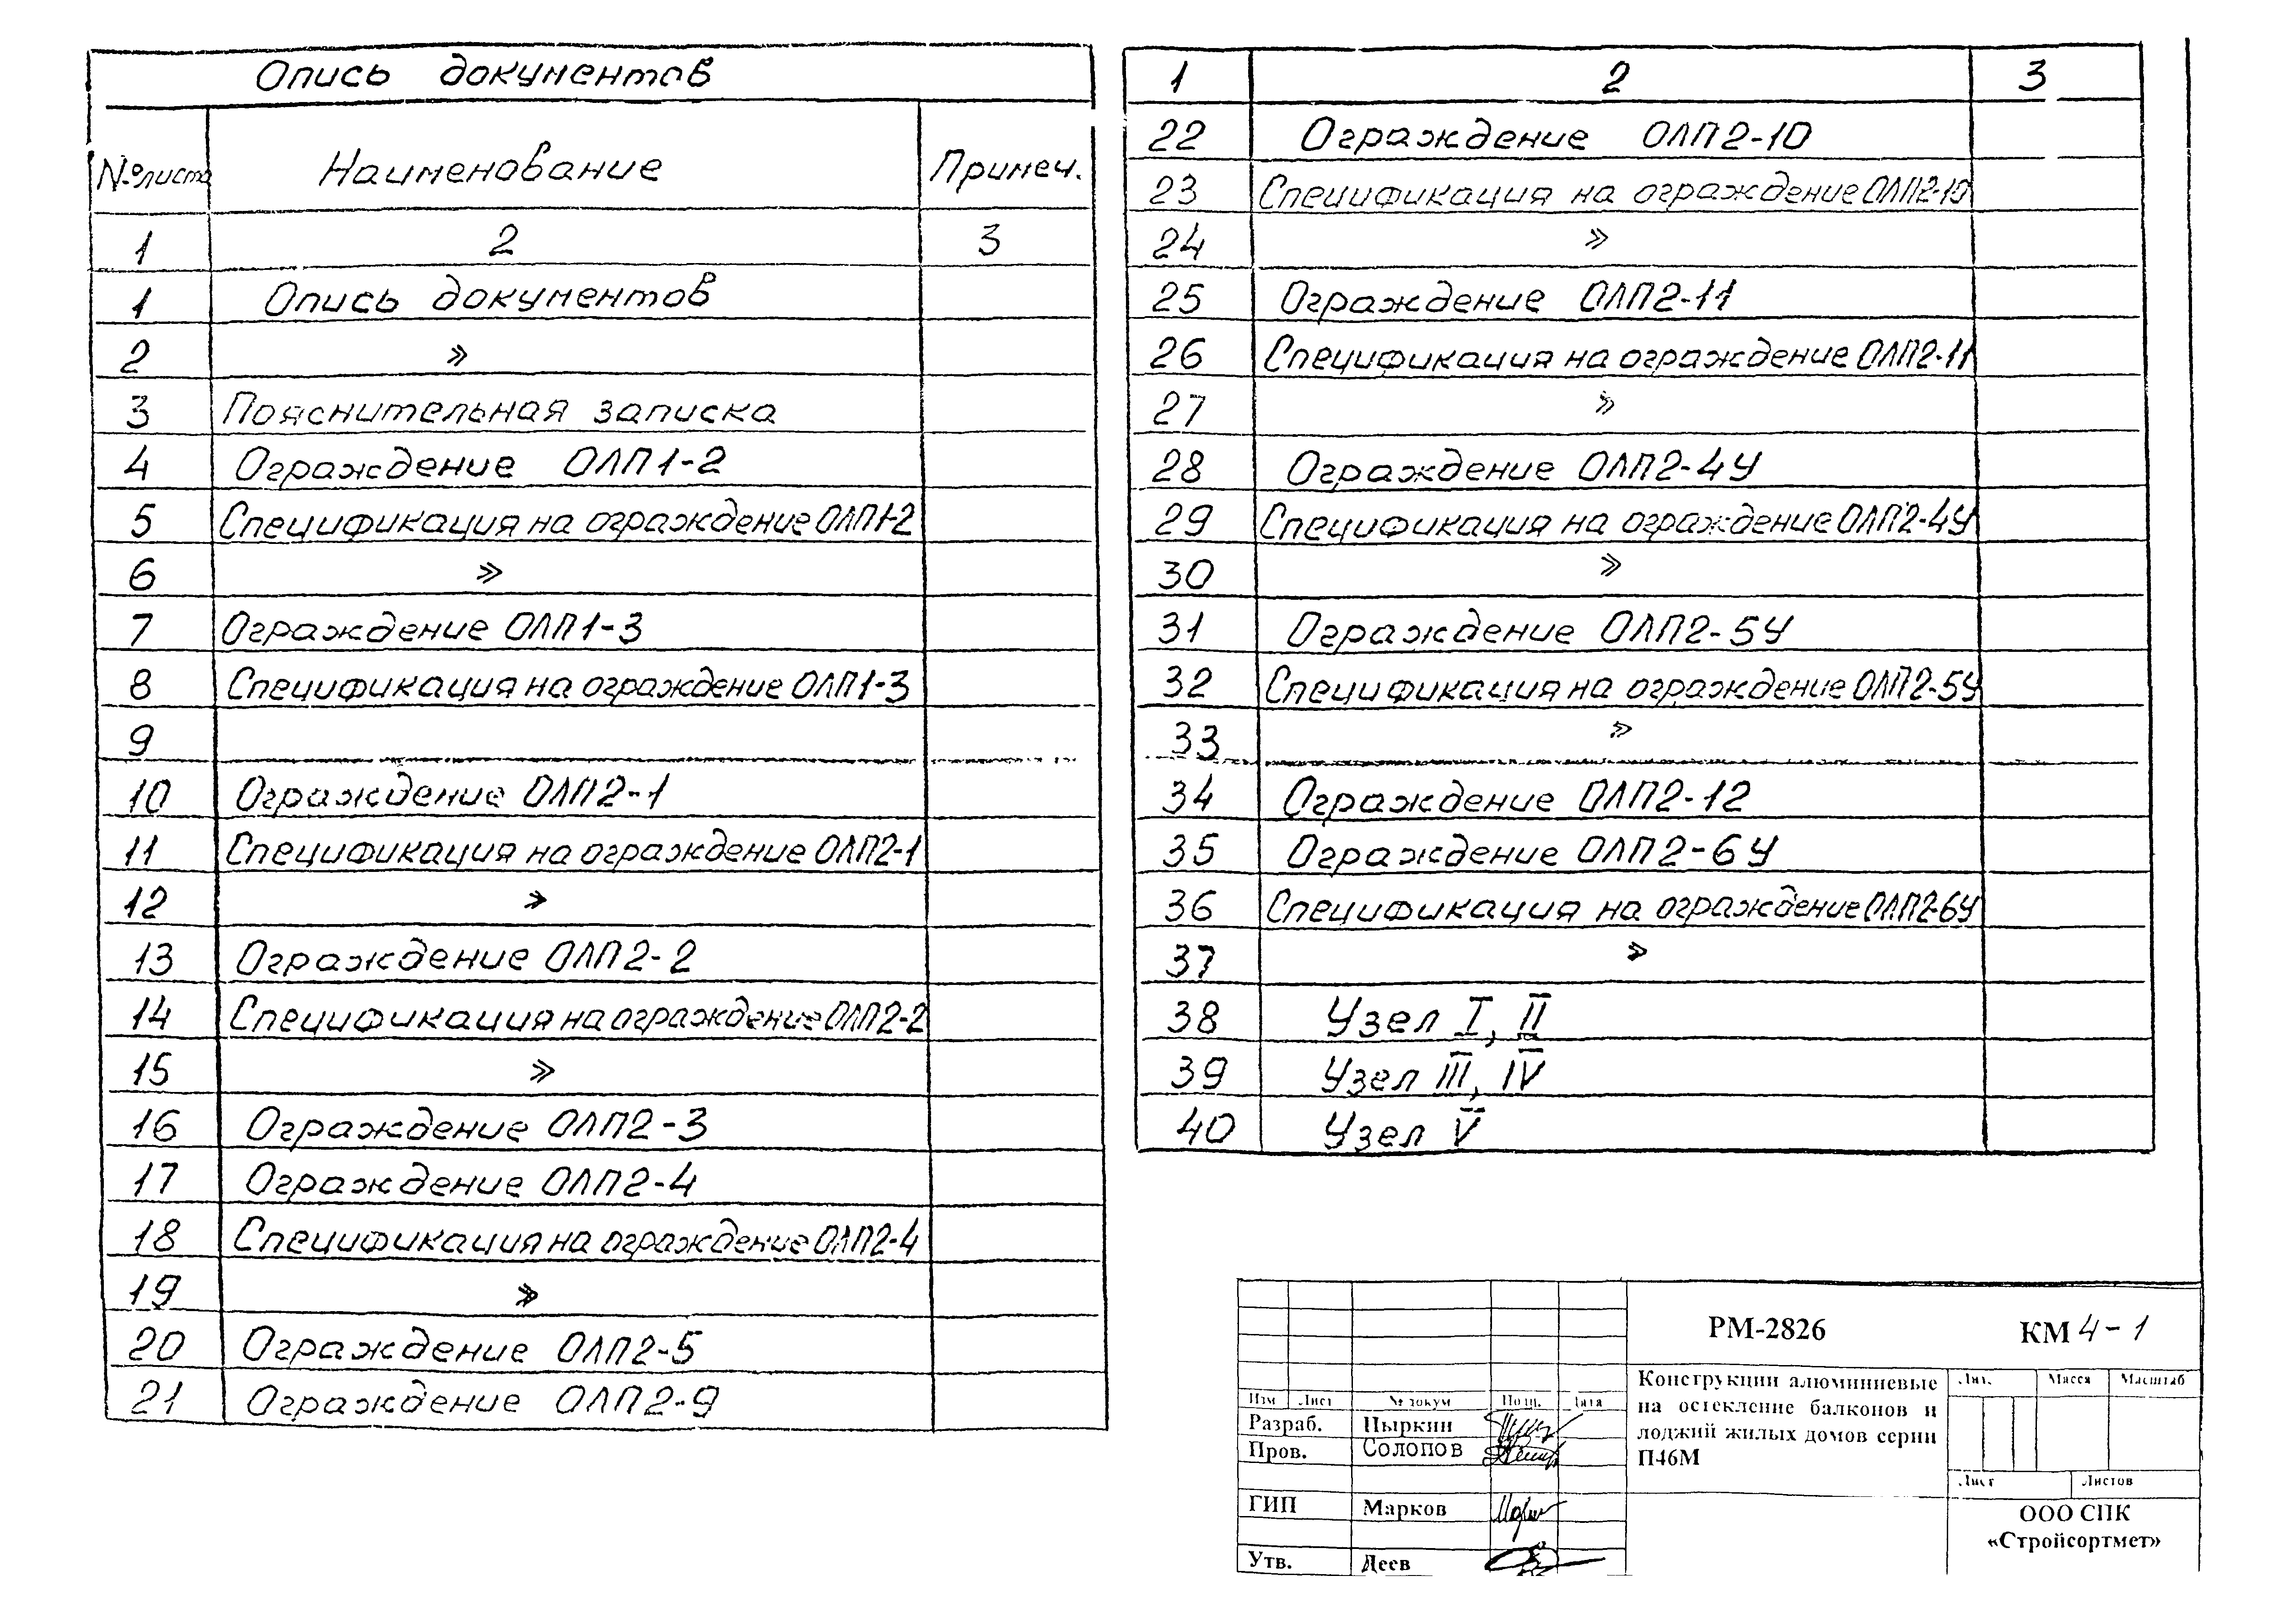 Опись документов
№ листа Наименование Примеч.
1 2 3
1 Опись документов
2 »
3 Пояснительная записка
4 Ограждение ОЛП1-2
5 Спецификация на ограждение ОЛП1-2
6 »
7 Ограждение ОЛП1-3
8 Спецификация на ограждение ОЛП1-3
9
10 Ограждение ОЛП2-1
11 Спецификация на ограждение ОЛП2-1
12 »
13 Ограждение ОЛП2-2
14 Спецификация на ограждение ОЛП2-2
15 »
16 Ограждение ОЛП2-3
17 Ограждение ОЛП2-4
18 Спецификация на ограждение ОЛП2-4
19 »
20 Ограждение ОЛП2-5
21 Ограждение ОЛП2-9
1 2 3
22 Ограждение ОЛП2-10
23 Спецификация на ограждение ОЛП2-10
24 »
25 Ограждение ОЛП2-11
26 Спецификация на ограждение ОЛП2-11
27 »
28 Ограждение ОЛП2-4У
29 Спецификация на ограждение ОЛП2-4У
30 »
31 Ограждение ОЛП2-5У
32 Спецификация на ограждение ОЛП2-5У
33 »
34 Ограждение ОЛП2-12
35 Ограждение ОЛП2-6У
36 Спецификация на ограждение ОЛП2-6У
37 »
38 Узел I, II
39 Узел III, IV
40 Узел V
РМ-2826 КМ 4-1
Изм Лист № докум Подп. Дата
Разраб. Цыркин
Пров. Солопов
ГИП Марков
Утв. Деев
Конструкции алюминиевые
на остекление балконов и
лоджий жилых домов серии
П46М
Лит. Масса Масштаб
Лист Листов
ООО СПК
«Стройсортмет»